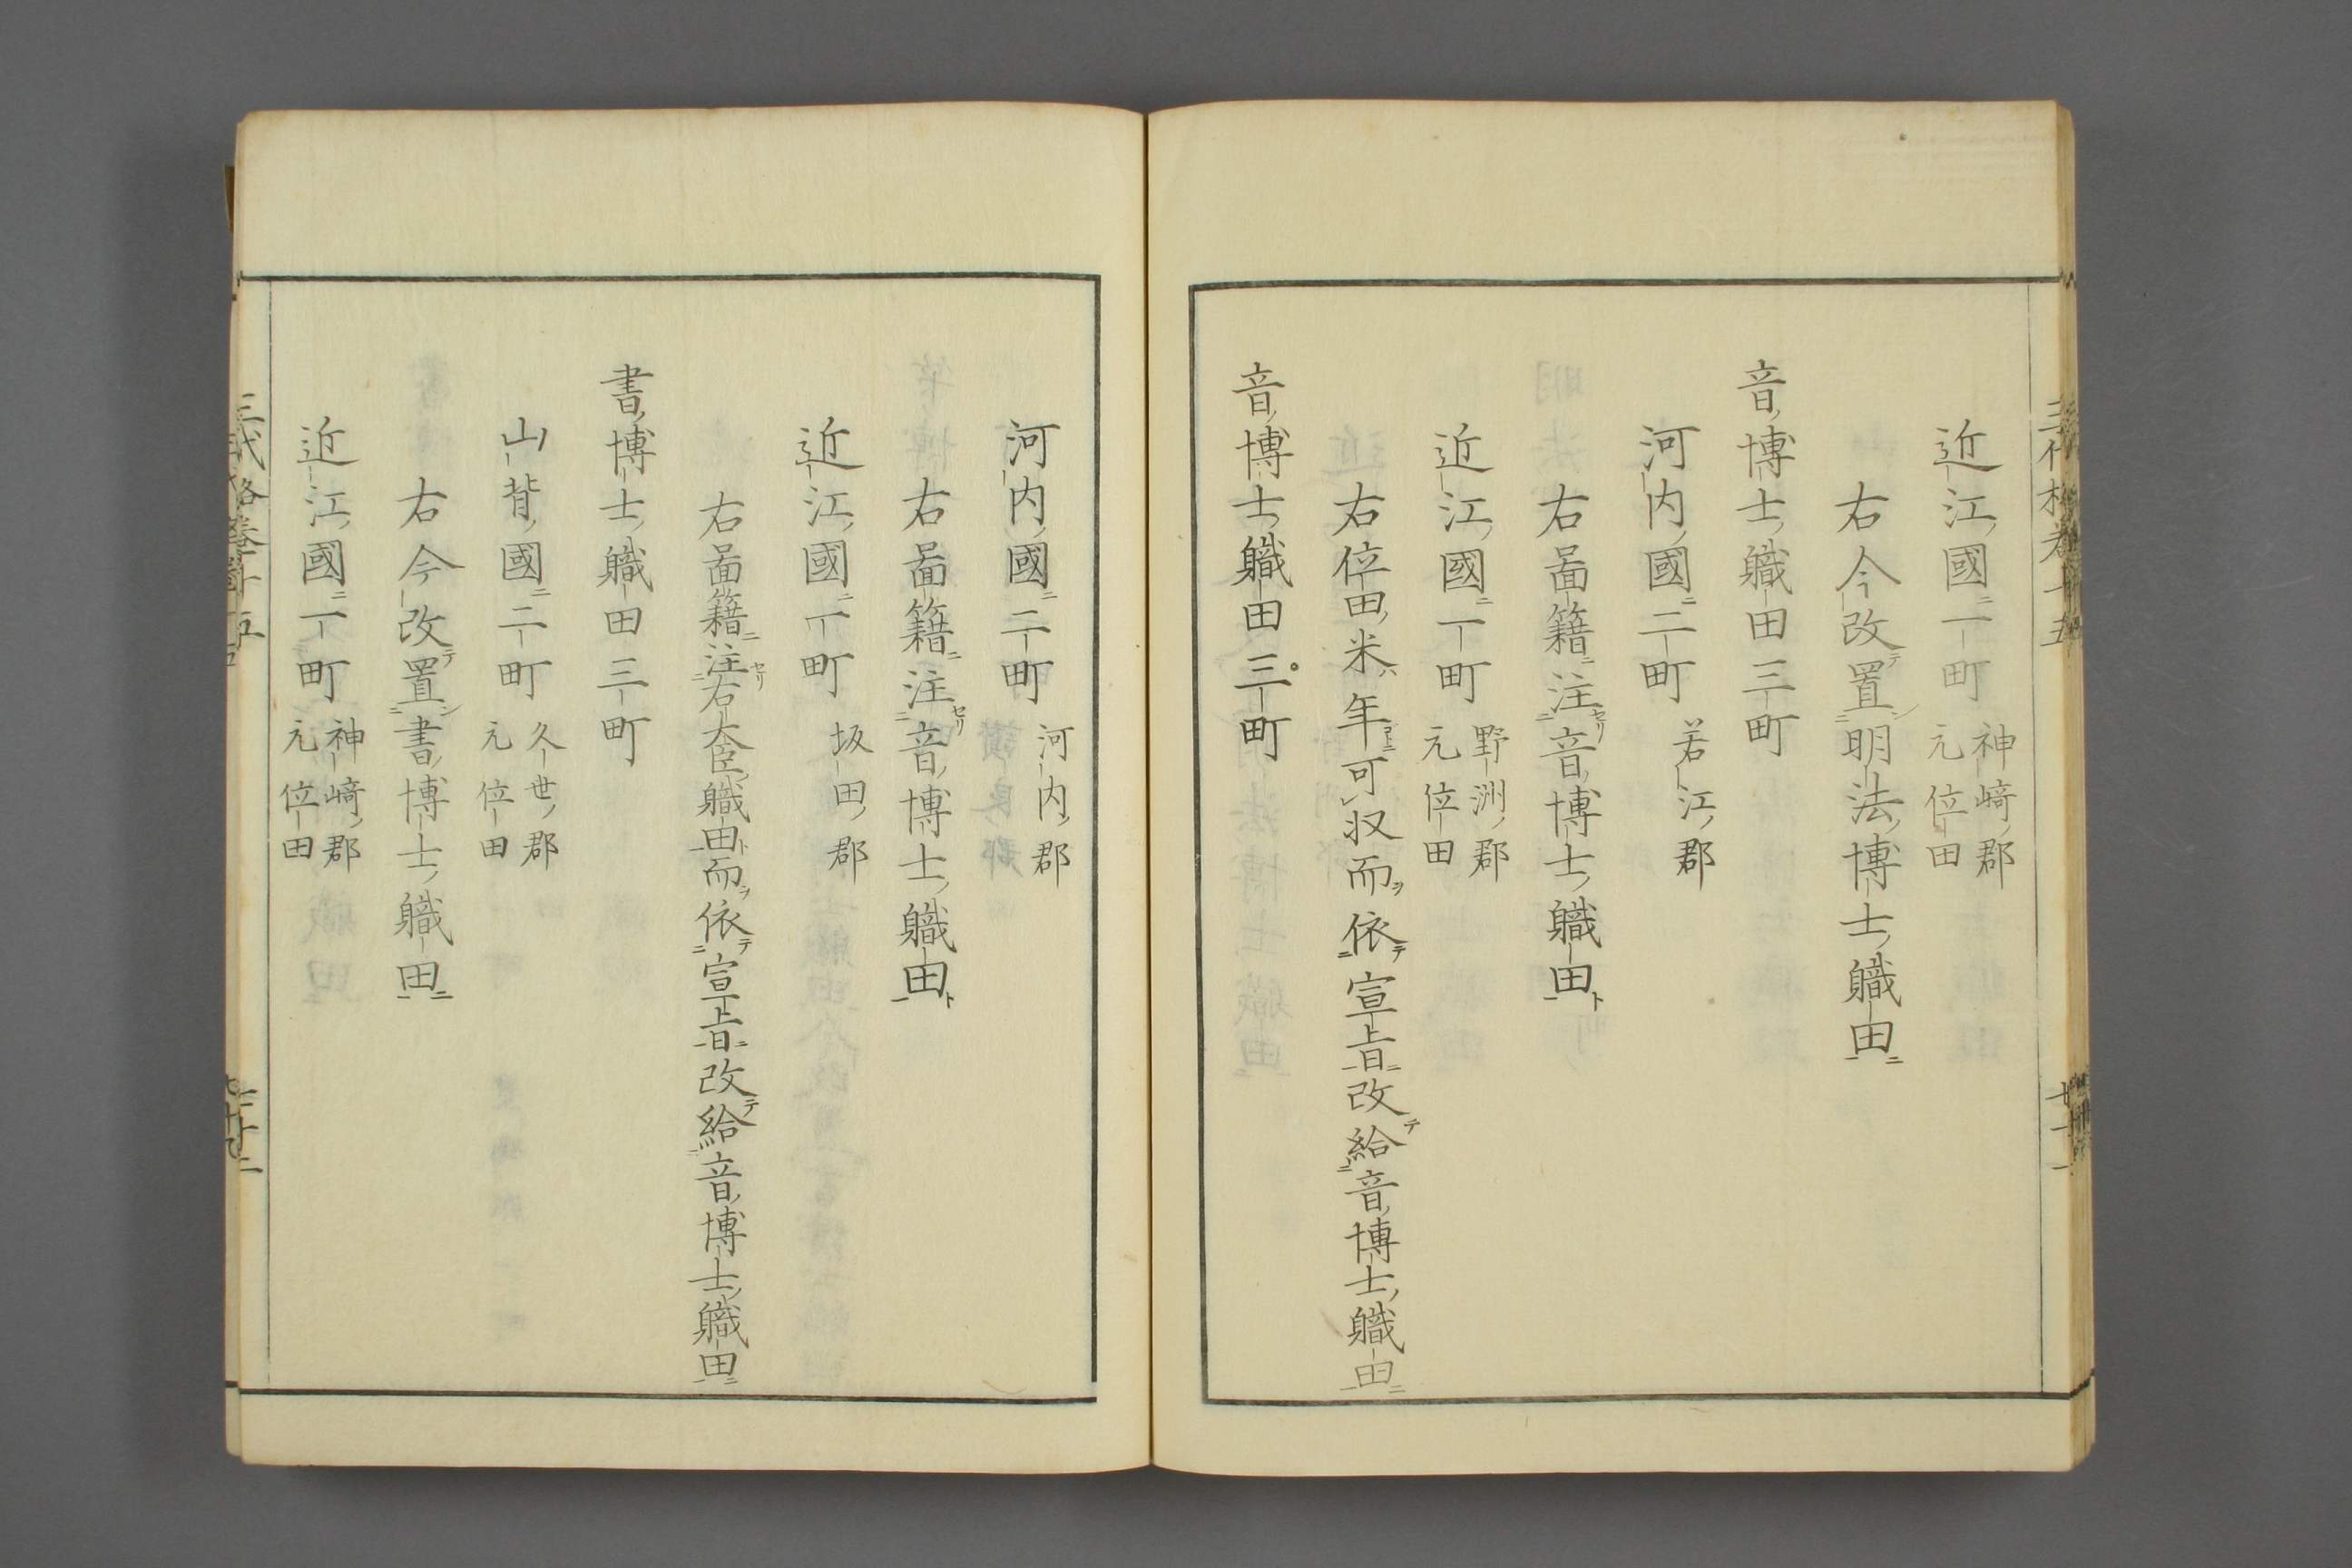 近江國一町 神﨑郡 元位田
右今改置明法博士職田
音博士職田三町
河内國二町 若江郡
右圖籍注音博士職田
近江國一町 野洲郡 元位田
右位田米年可収而依宣旨改給音博士職田
音博士職田三町
河内國二町 河内郡
右圖籍注音博士職田
近江國一町 坂田郡
右圖籍注右大臣職田而依宣旨改給音博士職田
書博士職田三町
山背國二町 久世郡 元位田
右今改置書博士職田
近江國一町 神﨑郡 元位田